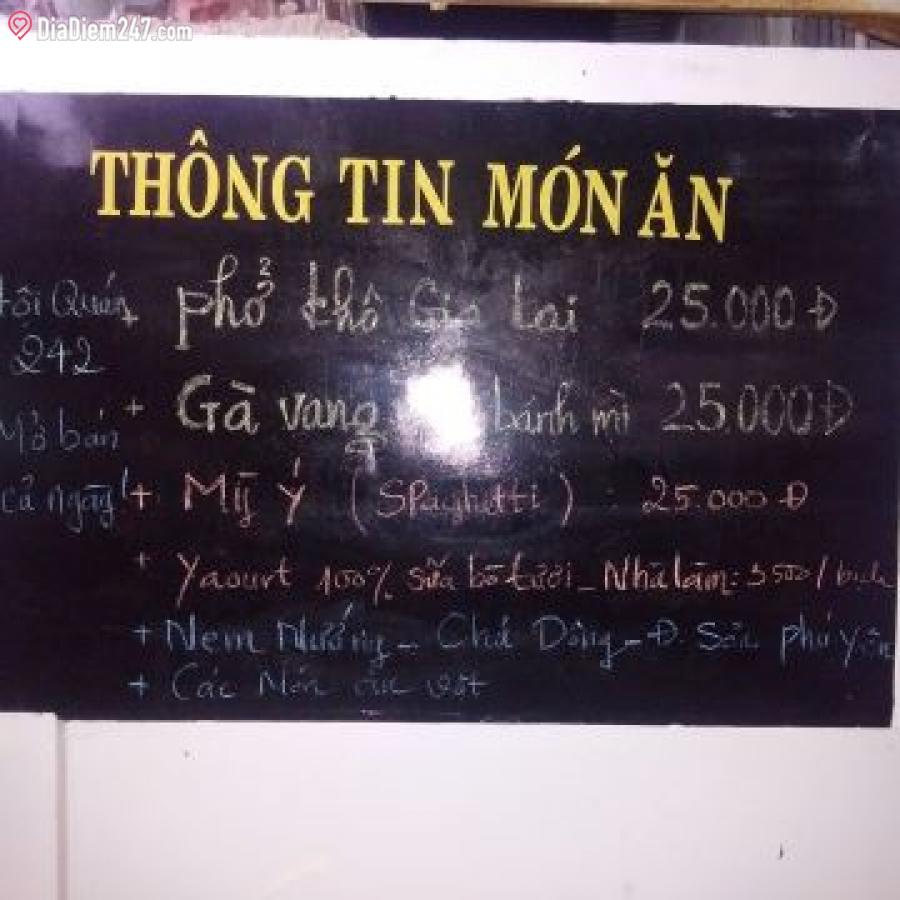 DiaDiem247.com
THÔNG TIN MÓN ĂN
+ phở khô Gia Lai 25.000 Đ
+ Gà vang bánh mì 25.000 Đ
+ Mỹ Ý (Spaghetti) : 25.000 Đ
+ Yaourt 100% sữa bò tươi - Nhà làm: 3500/bịch
+ Nem Nướng - Chả Dông - Đ. Sản phú yên
+ Các Món ăn vặt
Quán
242
Mở bán
cả ngày!